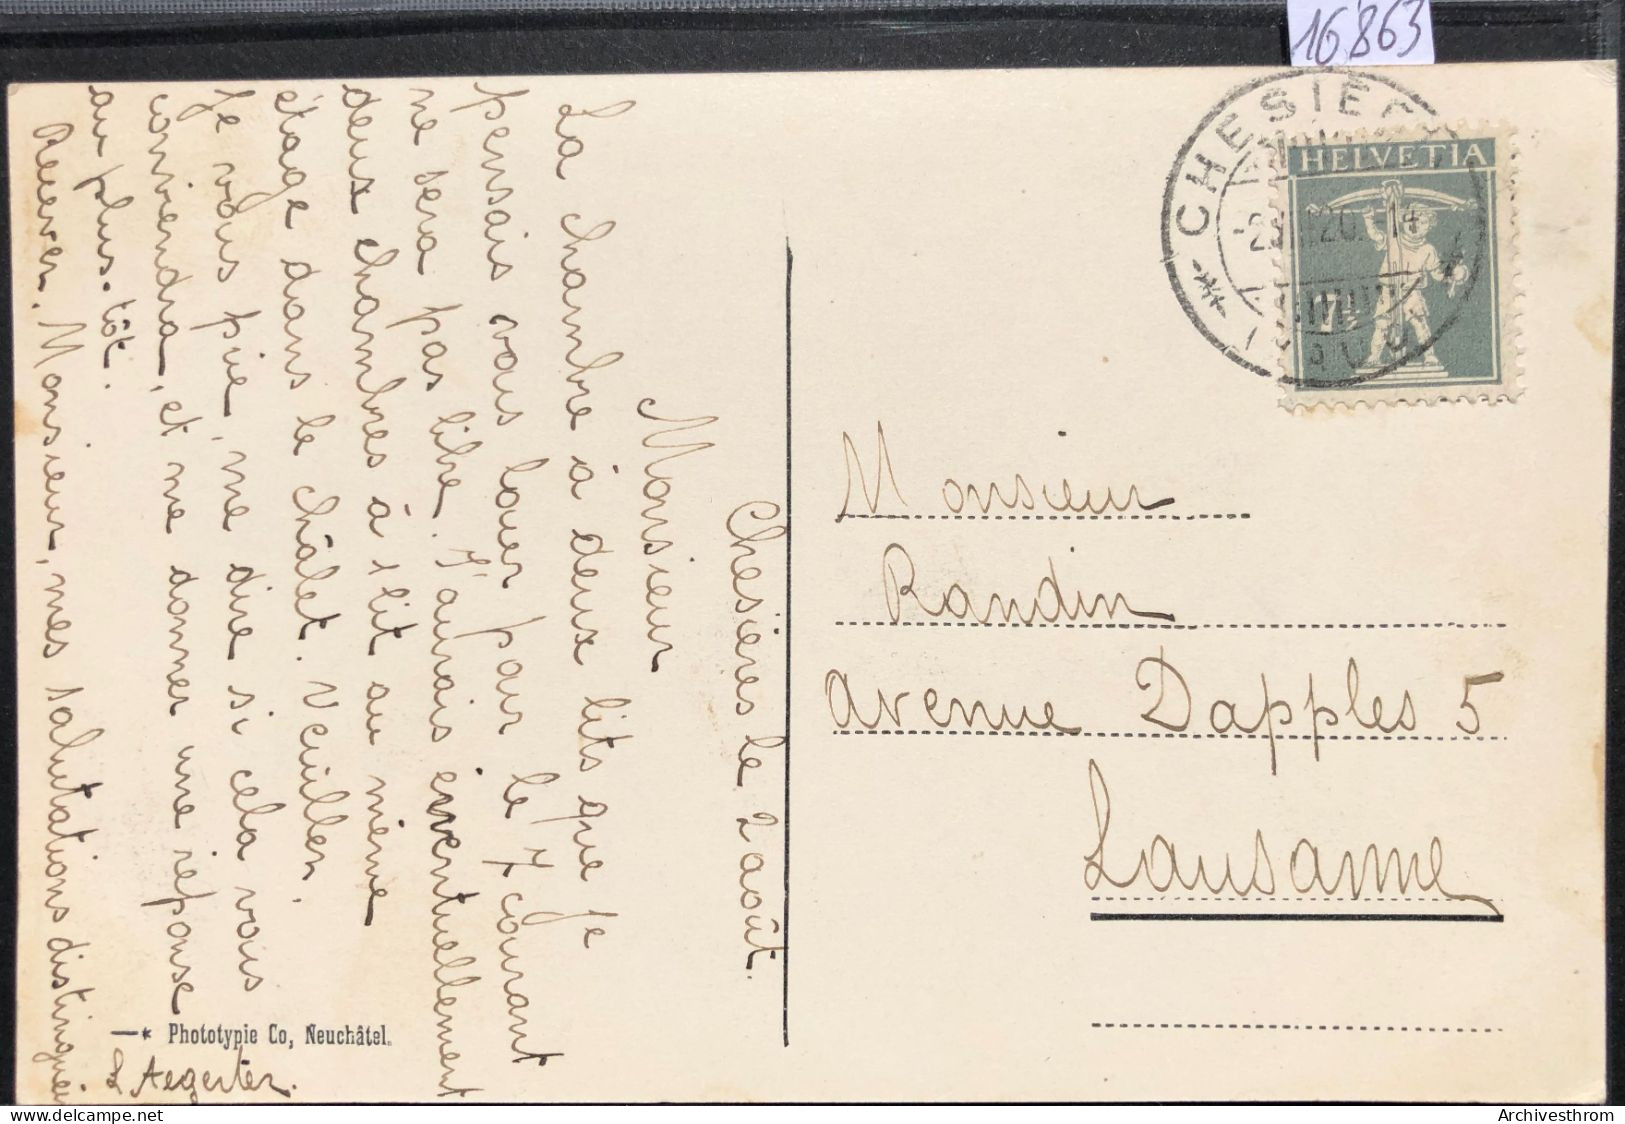 16'863
CHESIÈRES
HELVETIA
7½
Chesières le 2 août.
Monsieur
La chambre à deux lits que je
pensais vous louer pour le 7 courant
ne sera pas libre. J'aurais eventuellement
deux chambres à 1 lit au même
étage dans le châlet. Veuillez.
Je vous prie, me dire si cela vous
conviendra, et me donner une réponse
au plus-tôt.
Recevez, Monsieur, mes salutations distinguées
Aegerter.
—* Phototypie Co, Neuchâtel.
Monsieur
Randin
avenue Dapples 5
Lausanne
delcampe.net
Archivesthrom